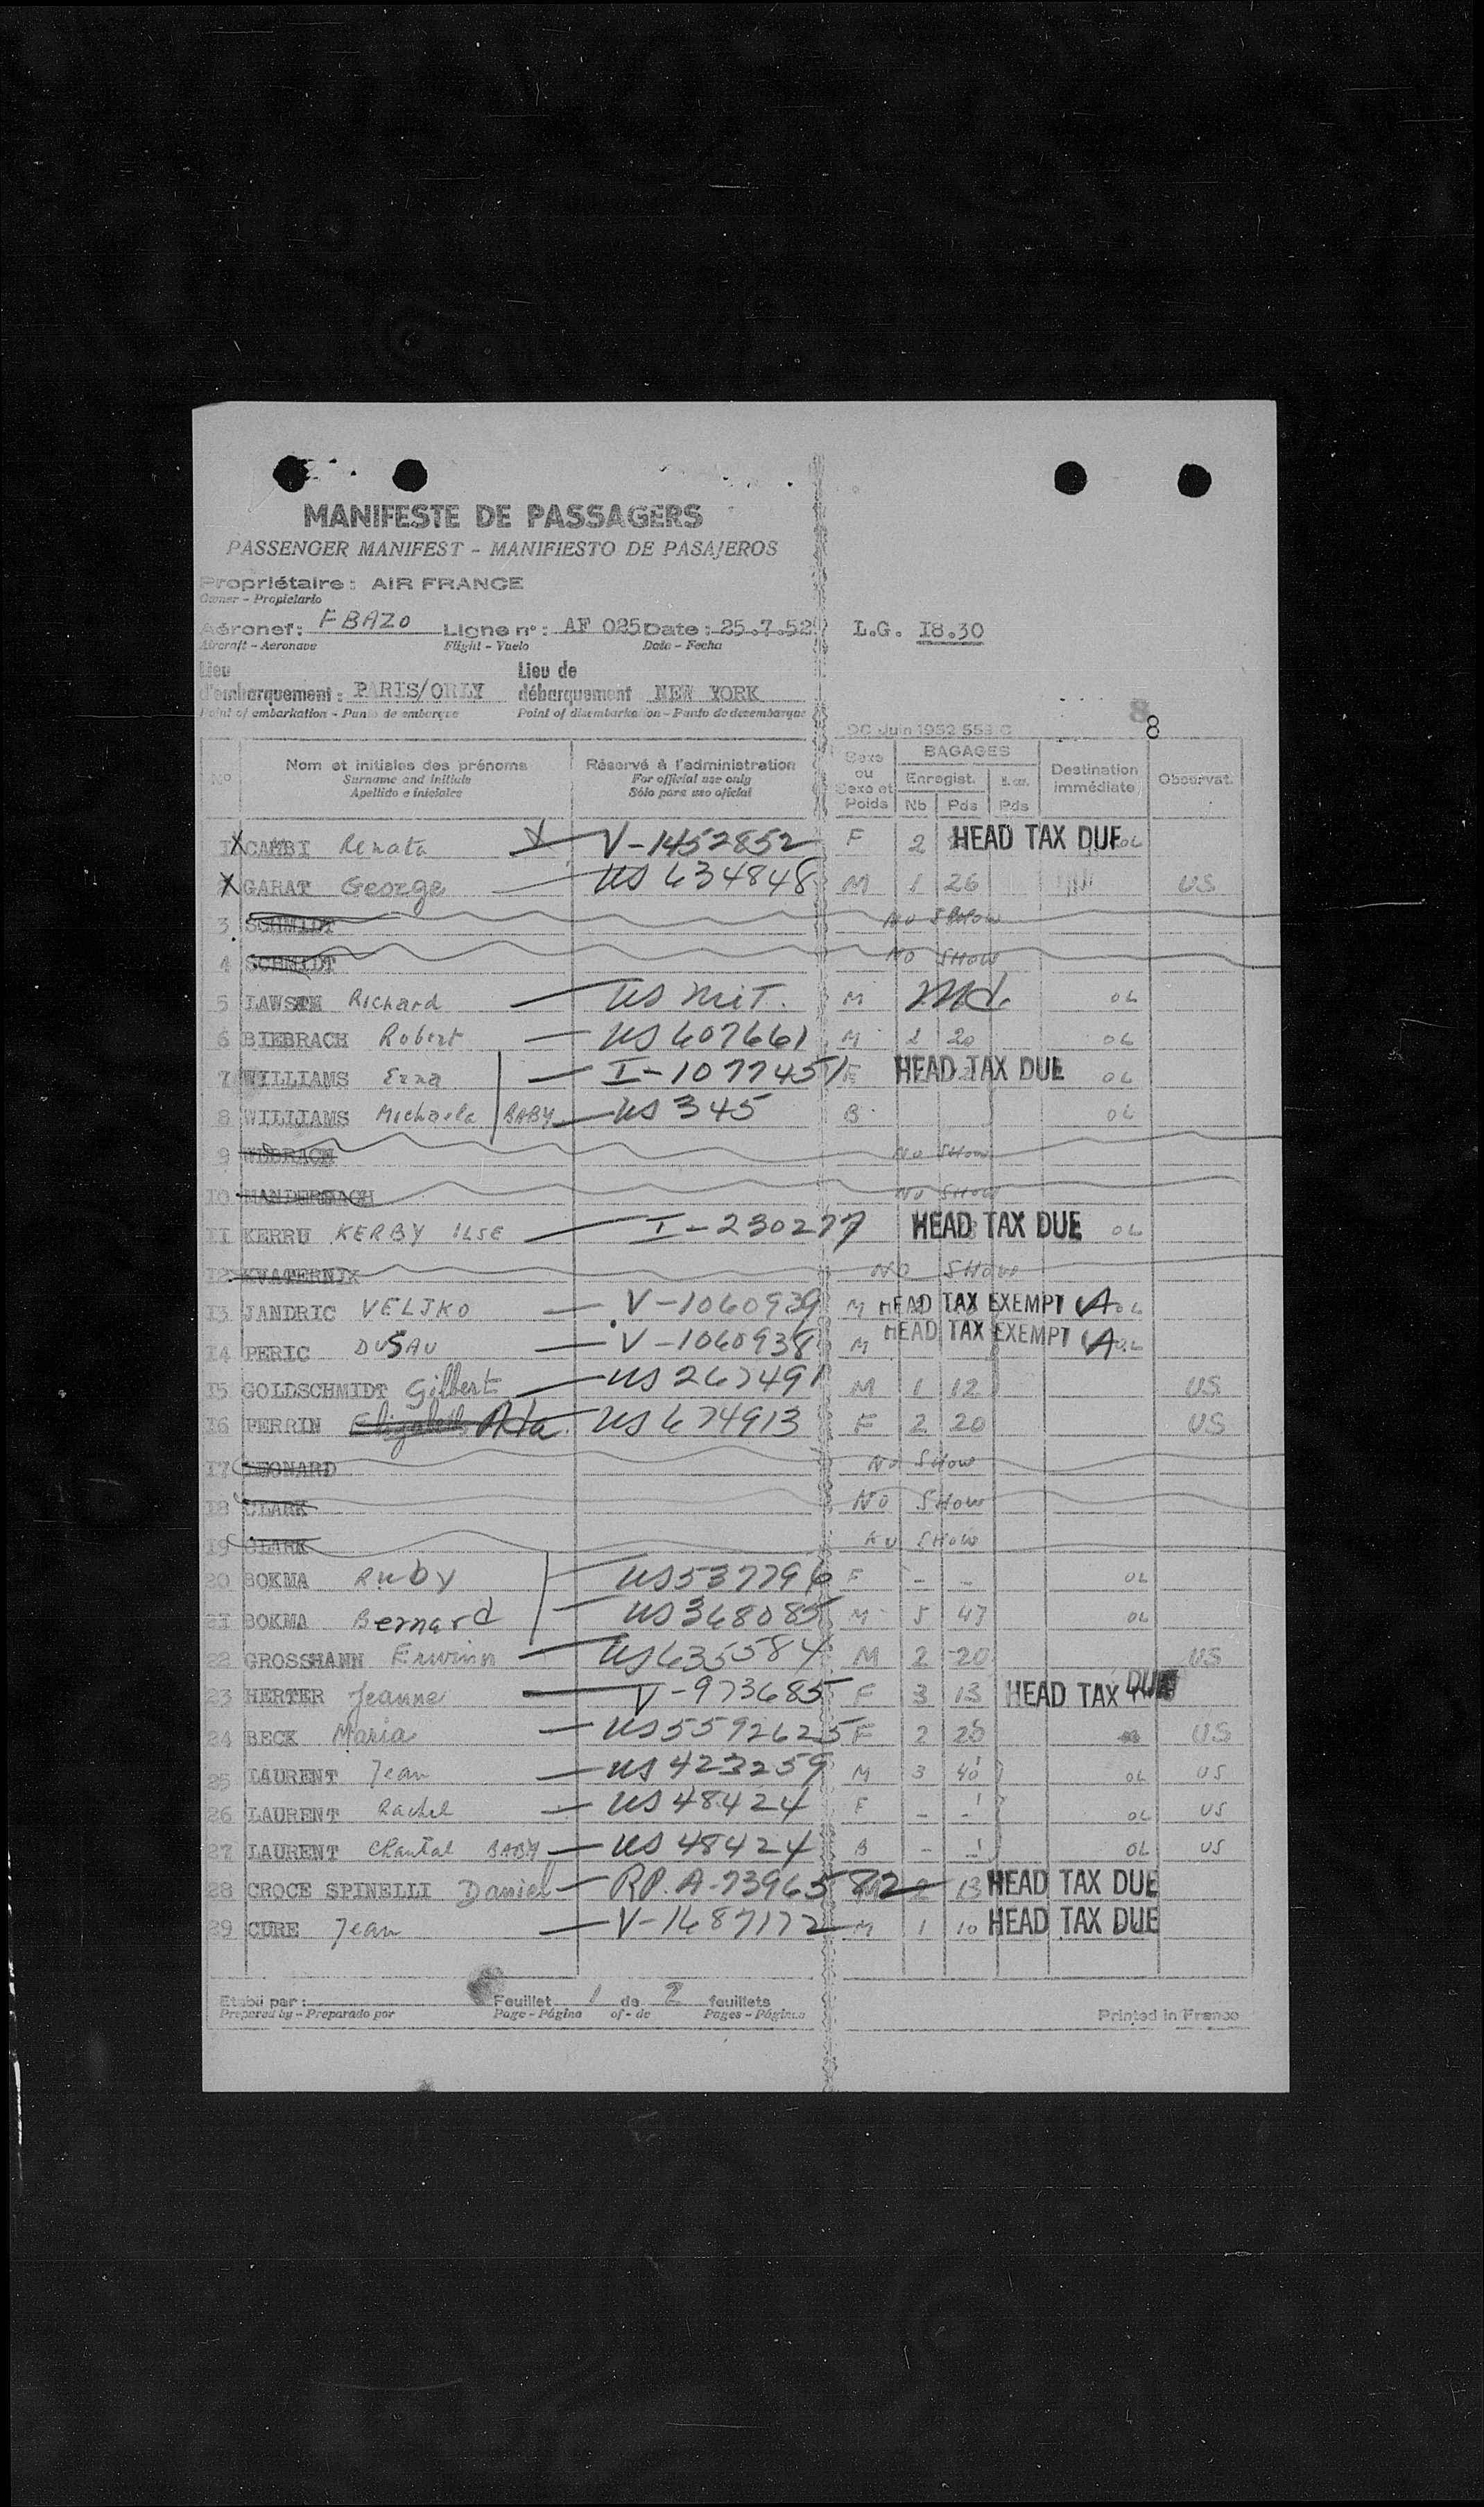 MANIFESTE DE PASSAGERS
PASSENGER MANIFEST - MANIFIESTO DE PASAJEROS
Propriétaire : AIR FRANCE
Owner - Propietario
Aéronef : FBAZO Ligne n° : AF 025 Date : 25.7.52 L.G. 18.30
Aircraft - Aeronave Flight - Vuelo Date - Fecha
Lieu Lieu de
d'embarquement : PARIS/ORLY débarquement NEW YORK
Point of embarkation - Punto de embarque Point of disembarkation - Punto de desembarque
8
8
OC Juin 1952 553 C
N° Nom et initiales des prénoms Réservé à l'administration Sexe ou Sexe et Poids BAGAGES Destination immédiate Observat.
Surname and initials For official use only Enregist.
Apellido e iniciales Sólo para uso oficial Nb Pds Pds
1 X CAMBI Renata X V-1452852 F 2 HEAD TAX DUE OL
X GARAT George US 634848 M 1 26 US
3 SCHMIDT No SHow
4 SCHMIDT NO SHow
5 Richard US MIT. M OL
6 BIEBRACH Robert US 607661 M 1 20 OL
7 WILLIAMS Erna I-1077451 F HEAD TAX DUE OL
8 WILLIAMS Michaela BABY US 345 B OL
9 No SHow
10 No SHow
11 KERRU KERBY ILSE I-230277 HEAD TAX DUE OL
12 KVATERNIK NO SHow
13 JANDRIC VELJKO V-1060939 M HEAD TAX EXEMPT OL
14 PERIC DUSAU V-1060938 M HEAD TAX EXEMPT OL
15 GOLDSCHMIDT Gilbert US 267491 M 1 12 US
16 PERRIN Elizabeth US 674913 F 2 20 US
17 LEONARD No SHow
18 CLARK No SHow
19 CLARK No SHow
20 BOKMA Ruby US537796 F - - OL
21 BOKMA Bernard US368085 M 5 47 OL
22 GROSSMANN Erwinn US635584 M 2 20 US
23 HERTER Jeanne V-973685 F 3 13 HEAD TAX DUE
24 BECK Maria US5592625 F 2 20 US
25 LAURENT Jean US 423259 M 3 40 OL US
26 LAURENT Rachel US 48424 F - - OL US
27 LAURENT Chantal BABY US 48424 B - - OL US
28 CROCE SPINELLI Daniel RP. A-7396582 M 2 13 HEAD TAX DUE
29 CURE Jean V-1687172 M 1 10 HEAD TAX DUE
Etabli par : Feuillet 1 de 2 feuillets
Prepared by - Preparado por Page - Página of - de Pages - Páginas Printed in France